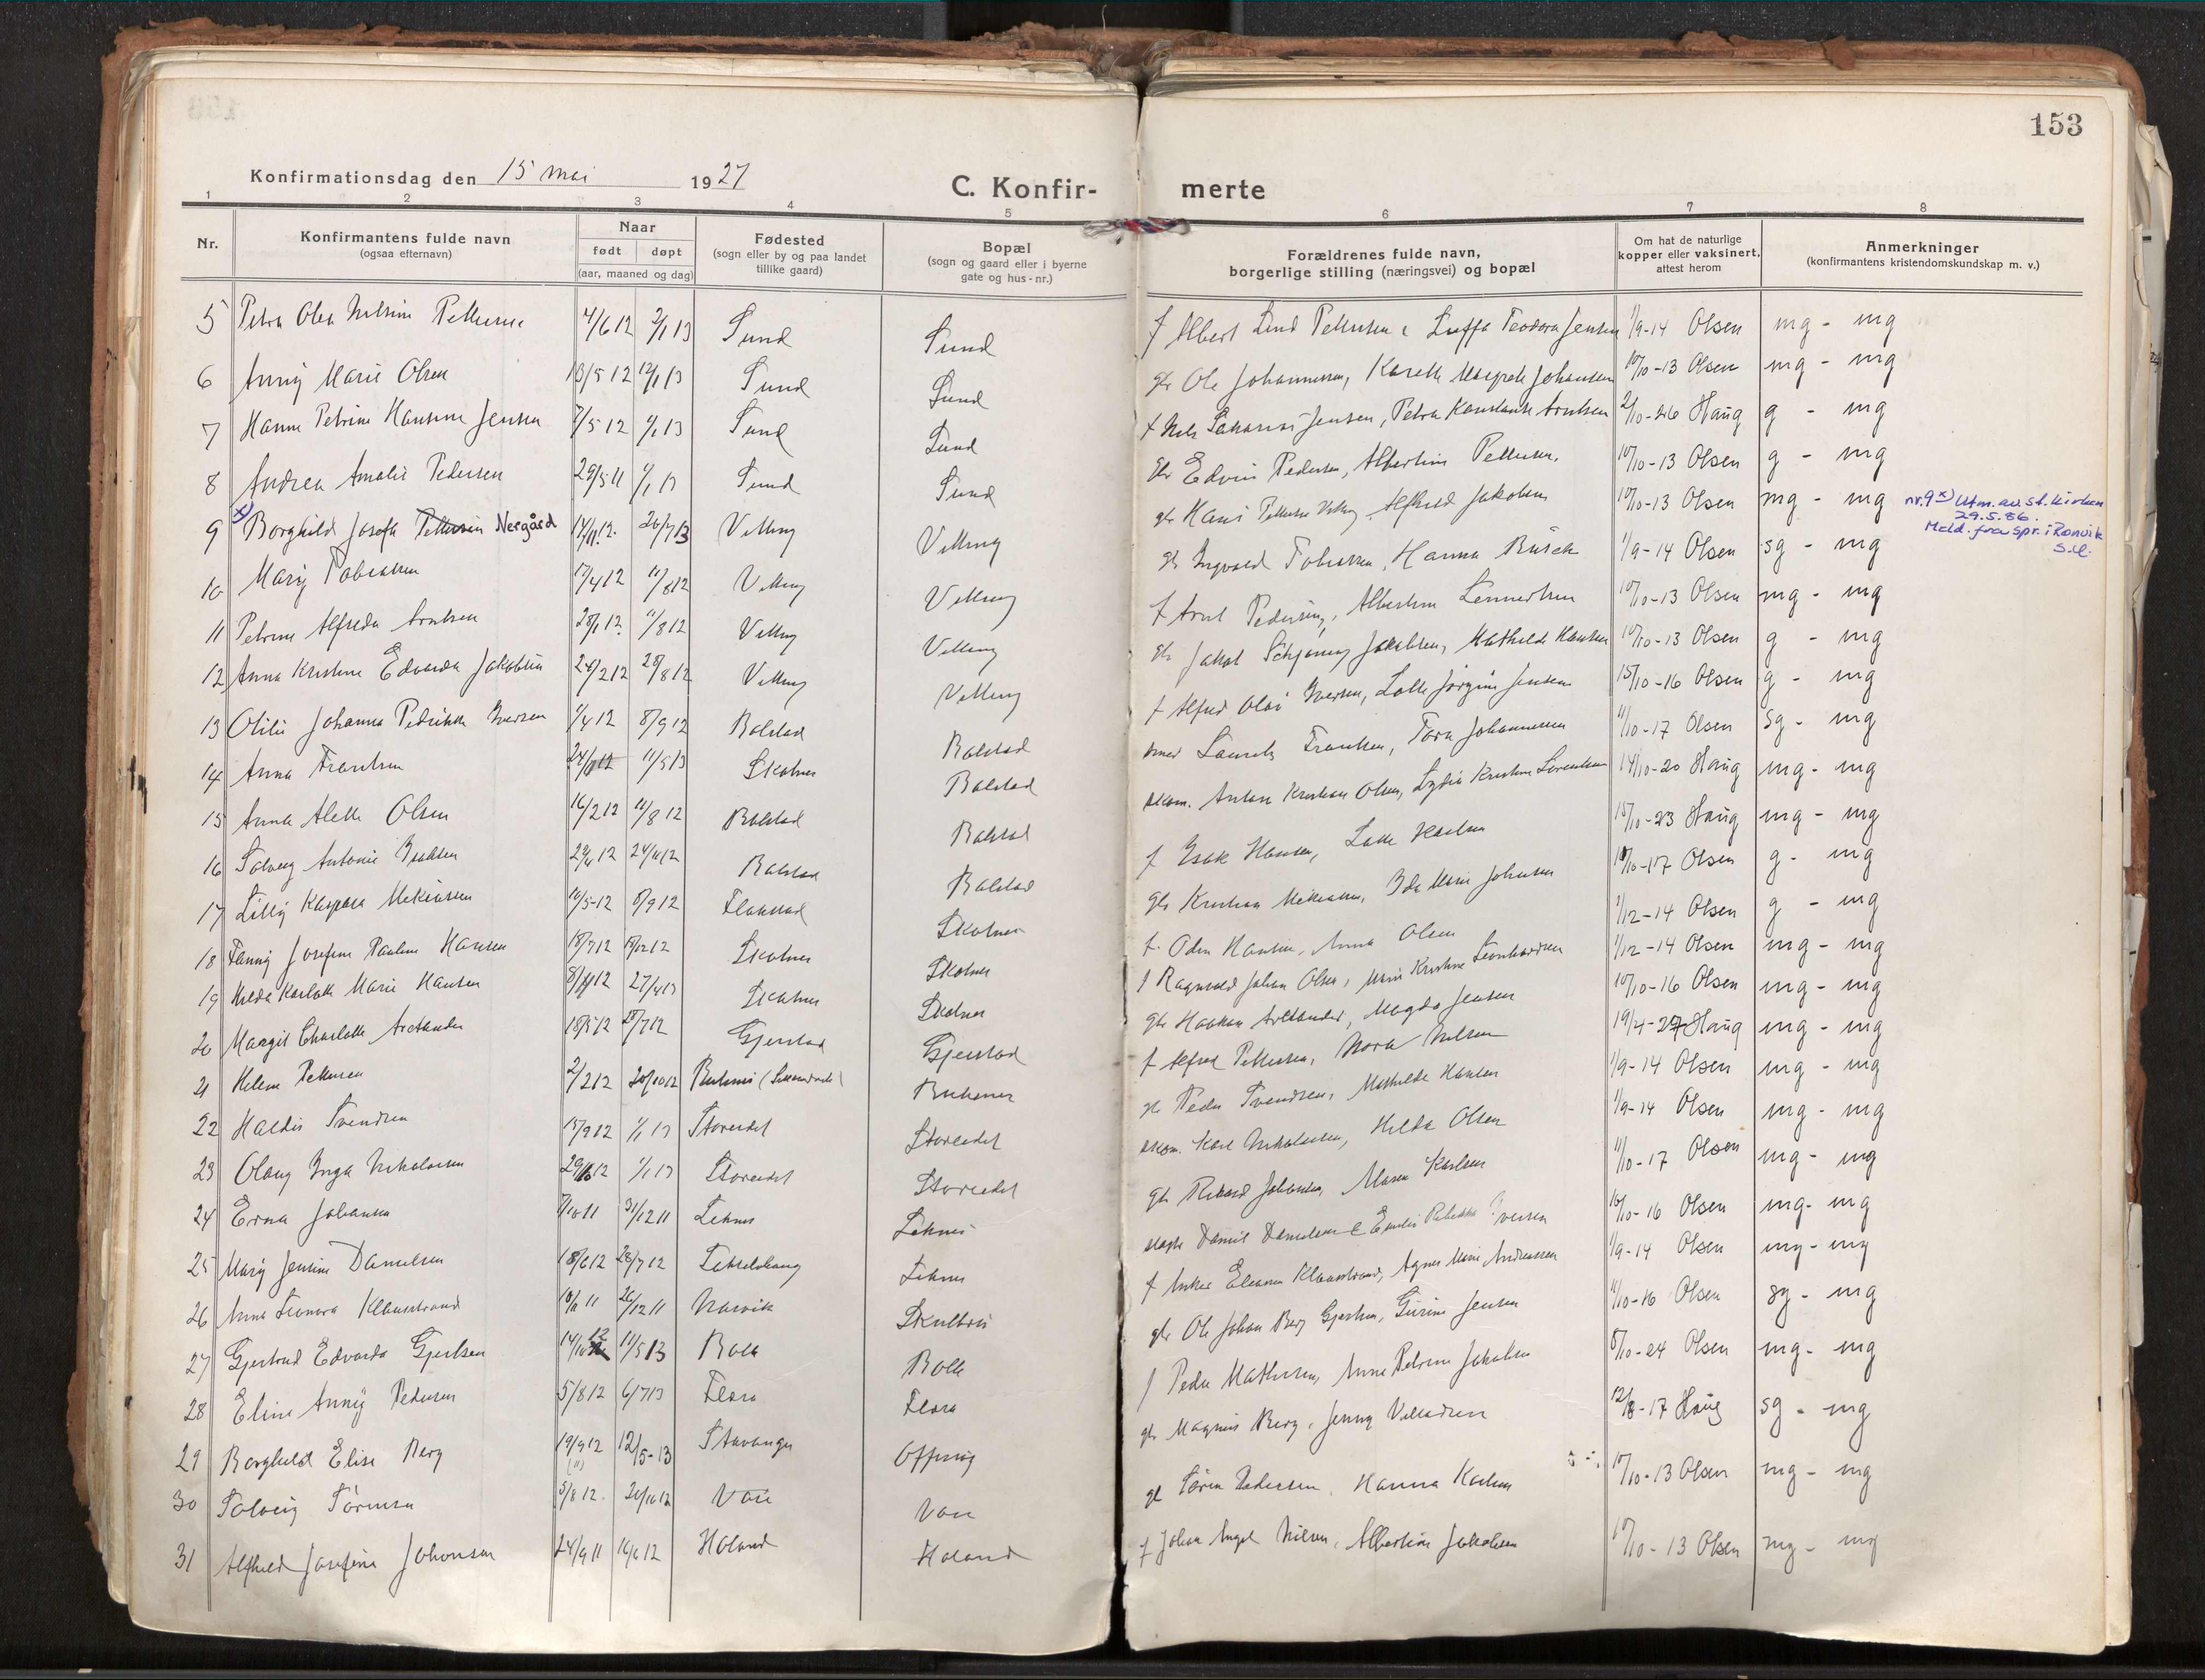 153
Konfirmationsdag den 15 mai 1927
C. Konfir- merte
1 2 3 4 5 6 7 8
Nr.
Konfirmantens fulde navn
(ogsaa efternavn)
Naar
født døpt
(aar, maaned og dag)
Fødested
(sogn eller by og paa landet
tillike gaard)
Bopæl
(sogn og gaard eller i byerne
gate og hus-nr.)
Forældrenes fulde navn,
borgerlige stilling (næringsvei) og bopæl
Om hat de naturlige
kopper eller vaksinert,
attest herom
Anmerkninger
(konfirmantens kristendomskundskap m. v.)
5 Petra Olea 4/6 12 Sund Sund f Albert Lind Pettersen Teodora Jensen 1/9-14 Olsen mg - mg
6 Anny Marie Olsen 13/5 12 12/1 13 Sund Sund gbr Ole Johannessen, Margrete Johansen 10/10-13 Olsen mg - mg
7 Hanna Petrine Jensen 7/5 12 1/1 13 Sund Sund f Nels Jensen, Petra Konstanse Arntsen 2/10-26 Haug g - mg
8 Andrea Amalie Pedersen 29/5 11 1/1 13 Sund Sund gbr Edvin Pedersen, Albertine Pettersen 10/10-13 Olsen g - mg
9 x) Borghild Josefa Pettersen Nergård 14/11 12. 20/7 13 Vetting Vetting gbr Hans Pettersen Alfhild Jakobsen 10/10-13 Olsen mg - mg
nr.9 x) Utm. av st. kirken
29.5.86.
Meld. fra spr. i Rønvik
S.U.
10 Mary Tobiassen 17/4 12 11/8 12 Vetting Vetting gbr Ingvald Tobiassen, Hanna Busch 1/9-14 Olsen sg - mg
11 Petrine Alfreda Arntsen 28/1 12. 11/8 12 Vetting Vetting f Arnt Pedersen, Albertine Lennertsen 10/10-13 Olsen mg - mg
12 Anna Kristine Edvarda Jakobsen 24/2 12 28/8 12 Vetting Vetting gbr Jakob Schjøning Jakobsen, Mathilde Hansen 10/10-13 Olsen g - mg
13 Otilie Johanna Pedrikke Iversen 1/4 12 8/9 12 Balstad Balstad f Alfred Olai Iversen, Lotte Jørgine Jensen 15/10-16 Olsen g - mg
14 Anna Frantsen 11/5 13 Skotnes Balstad Laurits Frantsen, Tora Johannessen 11/10-17 Olsen sg - mg
15 Anna Alette Olsen 16/2 12 11/8 12 Balstad Balstad skom. Anton Kristian Olsen, Lydia Kristine Sørensen 14/10-20 Haug mg - mg
16 Solveig Antonie Isaksen 24/11 12 Balstad Balstad f Isak Hansen, Lotte Karlsen 15/10-23 Haug mg - mg
17 Lilly Kaspara Mikelsen 10/5-12 8/9 12 Flakstad Skotnes gbr Kristian Mikelsen, Ida Marie Johansen 11/10-17 Olsen g - mg
18 Fanny Josefine Pauline Hansen 18/7 12 15/12 12 Skotnes Skotnes f. Odin Hansen, Anna Olsen 1/12-14 Olsen g - mg
19 Hilda Karlotte Marie Hansen 27/4 13 Skotnes Skotnes f Ragnvald Johan Olsen, Marie Kristine Leonhardsen 1/12-14 Olsen mg - mg
20 Margit Charlotte Arctander 18/5 12 28/7 12 Gjerstad Gjerstad gbr Haakon Arctander, Magda Jensen 10/10-16 Olsen mg - mg
21 Helene Pettersen 2/2 12 20/10 12 Buknes f Alfred Pettersen, Nora Nelsen 19/4-27 Haug mg - mg
22 Haldis Svendsen 15/9 12 1/1 13 Storeidet Storeidet gbr Peder Svendsen, Mathilde Hansen 1/9-14 Olsen mg - mg
23 Olaug Inga Nikolaisen 29/10 12 1/1 13 Storeidet Storeidet skom. Karl Nikolaisen, Hilda Olsen 1/9-14 Olsen mg - mg
24 Erna Johansen 31/12 11 Leknes Leknes gbr Rikard Johansen, Maren Karlsen 11/10-17 Olsen mg - mg
25 Mary Jensine Danielsen 18/6 12 28/7 12 Leknes Daniel Danielsen & Emilie Rebekka Iversen 10/10-16 Olsen mg - mg
26 Anna Leonora Klausstrand 26/12 11 Narvik Skulbru f Anker Klausstrand, Agnes Marie Andreassen 1/9-14 Olsen mg - mg
27 Gjertrud Edvarda Gjertsen 11/5 13 Bolle Bolle gbr Ole Johan Berg Gjertsen, Gurine Jensen 11/10-16 Olsen sg - mg
28 Eline Anny Pedersen 5/8 12 6/7 13 Flora Flora f Peder Mathisen, Anne Petrine Jakobsen 8/10-24 Olsen mg - mg
29 Borghild Elise Berg 19/9 12 12/5-13 Stavanger Offersøy gbr Magnus Berg, Jenny Villadsen 12/8-17 Haug sg - mg
30 Solveig Sørensen 5/8 12. 20/10 12 Voie Voie gbr Søren Pedersen, Hanna Karlsen 17/10-13 Olsen mg - mg
31 Alfhild Josefine Johansen 24/9 11 Holand Holand f Johan Angel Nilsen, Albertine Jakobsen 17/10-13 Olsen mg - mg